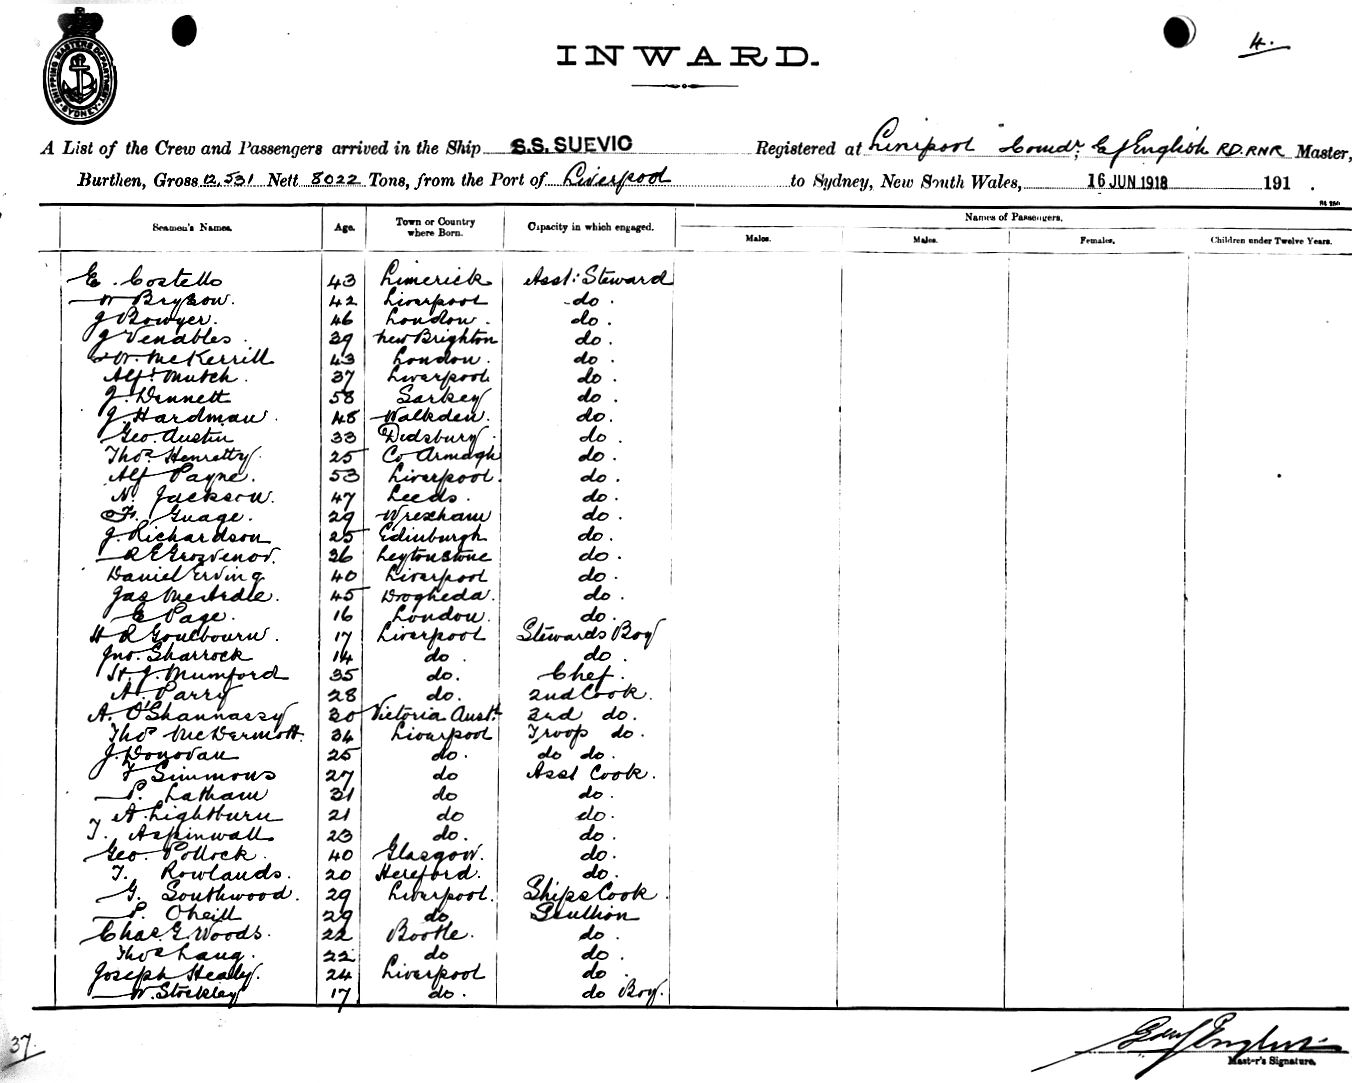 SHIPPING MASTERS DEPARTMENT SYDNEY
INWARD.
4.
A List of the Crew and Passengers arrived in the Ship S.S. SUEVIC Registered at Liverpool Comdr. English RD. RNR Master,
Burthen, Gross 12,531 Nett 8022 Tons, from the Port of Liverpool to Sydney, New South Wales, 16 JUN 1918 191 .
Seamen's Names. Age. Town or Country where Born. Capacity in which engaged. Names of Passengers.
Males. Males. Females. Children under Twelve Years.
E. Costello 43 Limerick Asst: Steward
W Bryson. 42 Liverpool do.
J Bowyer. 46 London. do.
J Venables. 39 New Brighton do.
W. McKerrill 43 London. do.
Alf. Mutch. 37 Liverpool do.
J. Dennett 58 Sarkey do.
J. Hardman. 48 Walkden. do.
Geo. Austin 33 Didsbury. do.
Thos. Henretty. 25 Co Armagh do.
Alf Payne. 53 Liverpool. do.
N. Jackson. 47 Leeds. do.
F. Guage. 29 Wrexham do.
J. Richardson 25 Edinburgh do.
R E Grosvenor. 36 Leytonstone do.
Daniel Erving 40 Liverpool do.
Jas McArdle. 45 Drogheda. do.
E Page. 16 London. do.
H R Goulbourn. 17 Liverpool Stewards Boy
Jno. Sharrock 14 do. do.
H. J. Mumford 35 do. Chef.
A. Parry 28 do. 2nd Cook.
A. O'Shannassy 30 Victoria Aust. 2nd do.
Thos McDermott. 34 Liverpool Troop do.
J. Donovan 25 do. do do.
F Simmons 27 do Asst Cook.
P. Latham 31 do do.
A. Lightburn 21 do do.
T. Aspinwall 23 do. do.
Geo. Pollock. 40 Glasgow. do.
T. Rowlands. 20 Hereford. do.
G. Southwood. 29 Liverpool. Ships Cook.
P. Oneill 29 do Scullion
Chas. E. Woods. 22 Bootle. do.
Thos Lang. 22 do do.
Joseph Healy. 24 Liverpool do.
W. Stockley 17 do. do Boy.
37.
Master's Signature.